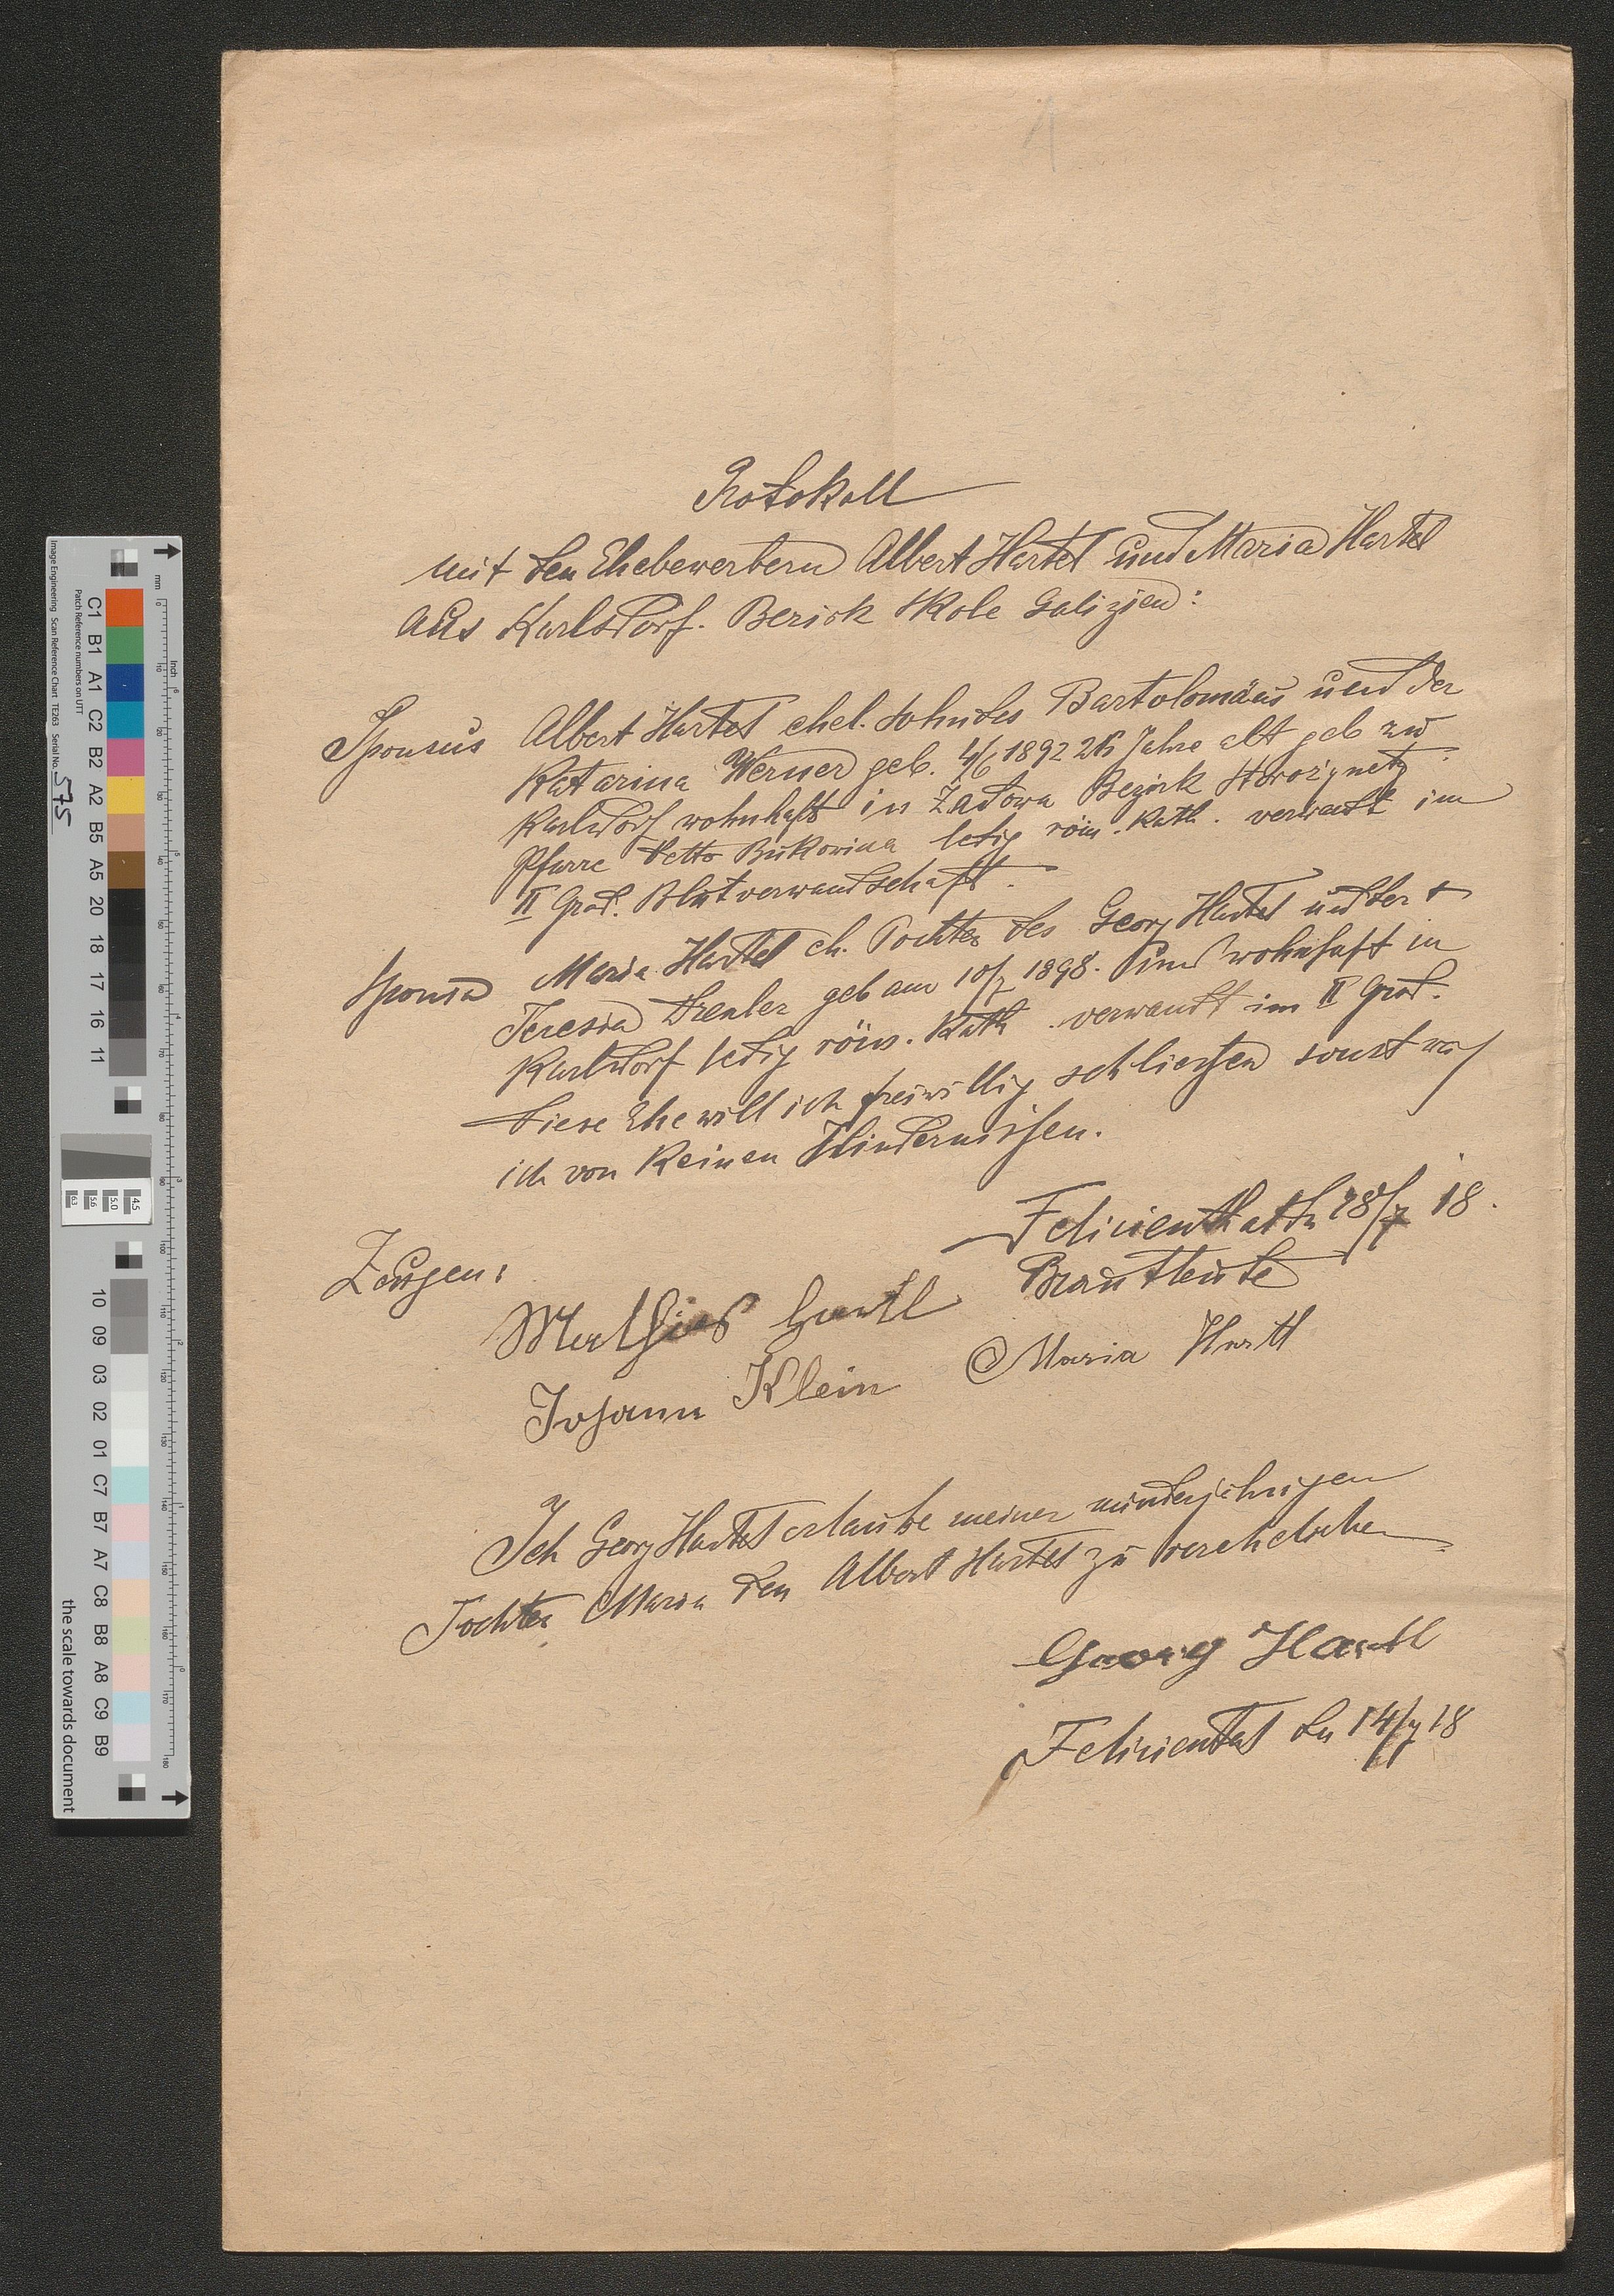 1
Protokoll
mit den Ehebewerbern Albert Hartel und Maria Hartel
aus Karlsdorf. Bezirk Skole Galizien:
Sponsus Albert Hartel ehel. Sohn des Bartolomäus und der
Katarina Werner geb. 4/6 1892 26 Jahre alt geb zu
Karlsdorf wohnhaft in Zadowa Bezirk Storożynetz
Pfarre detto Bukowina ledig röm. Kath. verwandt im
II Grad. Blutverwandschaft.
Sponsa Maria Hartel eh. Tochter des Georg Hartel und der †
Teresia geb am 10/7 1898. und wohnhaft in
Karlsdorf ledig röm. Kath. verwandt im II Grad.
Diese Ehe will ich freiwillig schliessen sonst
ich von Keinen Hindernissen.
Felicienthal 28/7 18.
Zeugen: Brautleute
Mathias Hartl
Maria Hartl
Johann Klein
Ich Georg Hartel erlaube meiner minderjährigen
Tochter Maria den Albert Hartel zu verehelichen
Georg Hartl
Felicienthal den 14/7 18
Image Engineering Scan Reference Chart TE263 Serial No. 575
Patch Reference numbers on UTT
C1 B1 A1 C2 B2 A2 B5 A5 20 18 17 16 11
10 09 03 02 01 C7 B7 A7 C8 B8 A8 C9 B9
the scale towards document